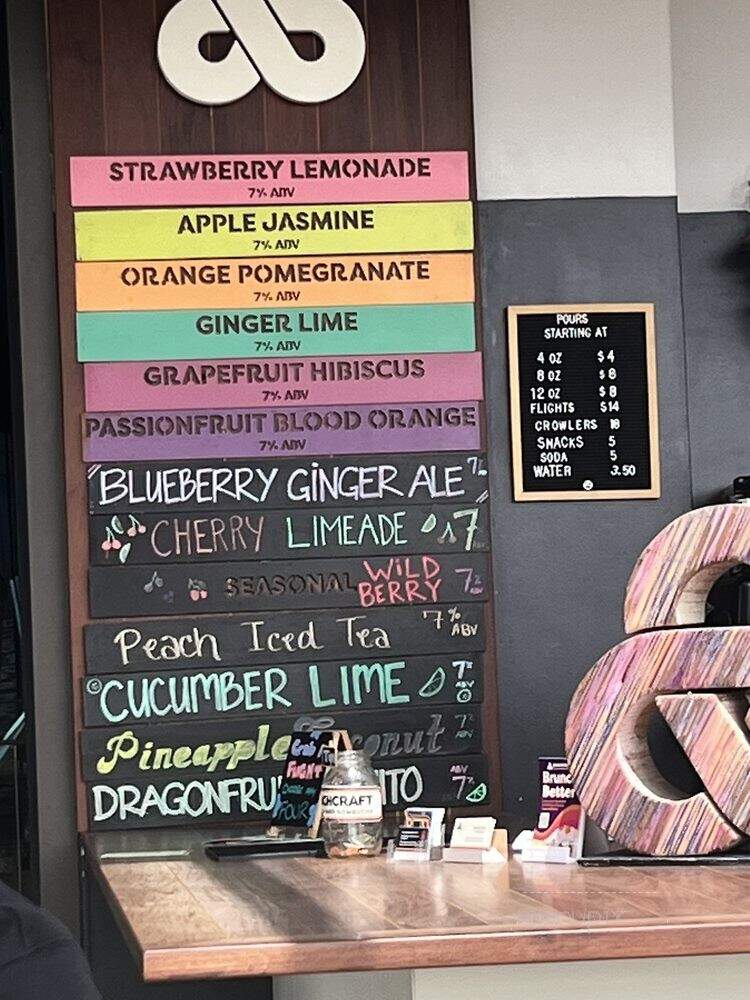 STRAWBERRY LEMONADE
7% ABV
APPLE JASMINE
7% ABV
ORANGE POMEGRANATE
7% ABV
GINGER LIME
7% ABV
GRAPEFRUIT HIBISCUS
7% ABV
PASSIONFRUIT BLOOD ORANGE
7% ABV
"BLUEBERRY GINGER ALE" 7%
CHERRY LIMEADE 7
SEASONAL WILD BERRY 7%
Peach Iced Tea 7% ABV
CUCUMBER LIME 7% ABV
Pineapple
DRAGONFRU ITO ABV 7%
POURS
STARTING AT
4 OZ $4
8 OZ $8
12 OZ $8
FLIGHTS $14
CROWLERS 18
SNACKS 5
SODA 5
WATER 3.50
FLIGHT
FOUR
CHCRAFT
Brunc
Better